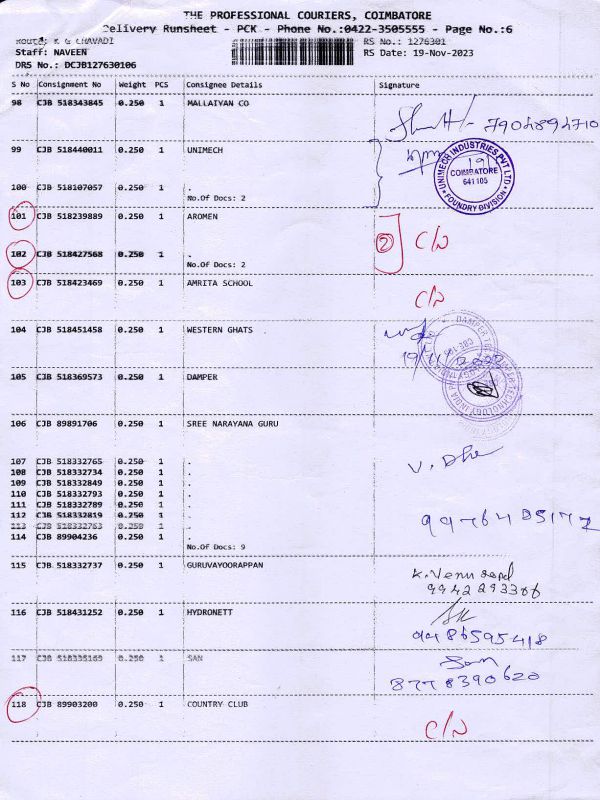 THE PROFESSIONAL COURIERS, COIMBATORE
Delivery Runsheet - PCK - Phone No.:0422-3505555 - Page No.:6
Route: K G CHAVADI RS No.: 1276301
Staff: NAVEEN RS Date: 19-Nov-2023
DRS No.: DCJB127630106
S No Consignment No Weight PCS Consignee Details Signature
98 CJB 518343845 0.250 1 MALLAIYAN CO
7904894710
99 CJB 518440011 0.250 1 UNIMECH
UNIMECH INDUSTRIES PVT LTD
191
COIMBATORE
641 105
FOUNDRY DIVISION
100 CJB 518107057 0.250 1 .
No.Of Docs: 2
101 CJB 518239889 0.250 1 AROMEN
2 C/N
102 CJB 518427568 0.250 1 .
No.Of Docs: 2
103 CJB 518423469 0.250 1 AMRITA SCHOOL
C/N
104 CJB 518451458 0.250 1 WESTERN GHATS
105 CJB 518369573 0.250 1 DAMPER
106 CJB 89891706 0.250 1 SREE NARAYANA GURU
V. Dhe
107 CJB 518332765 0.250 1 .
108 CJB 518332734 0.250 1 .
109 CJB 518332849 0.250 1 .
110 CJB 518332793 0.250 1 .
111 CJB 518332789 0.250 1 .
112 CJB 518332819 0.250 1 .
113 CJB 518332763 0.250 1 .
114 CJB 89904236 0.250 1 .
No.Of Docs: 9
115 CJB 518332737 0.250 1 GURUVAYOORAPPAN
116 CJB 518431252 0.250 1 HYDRONETT
9486595418
117 CJB 518335169 0.250 1 SAN
8778390620
118 CJB 89903200 0.250 1 COUNTRY CLUB
C/N